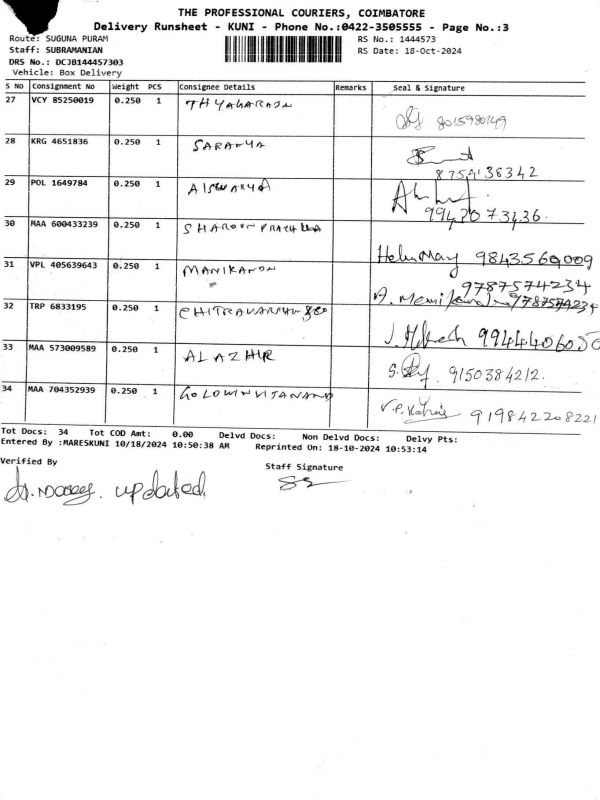 THE PROFESSIONAL COURIERS, COIMBATORE
Delivery Runsheet - KUNI - Phone No.:0422-3505555 - Page No.:3
Route: SUGUNA PURAM RS No.: 1444573
Staff: SUBRAMANIAN RS Date: 18-Oct-2024
DRS No.: DCJB144457303
Vehicle: Box Delivery
S No Consignment No Weight PCS Consignee Details Remarks Seal & Signature
27 VCY 85250019 0.250 1 THYAGARAJAN 8015980149
28 KRG 4651836 0.250 1 SARANYA 8754138342
29 POL 1649784 0.250 1 AISWARYA 9942073436.
30 MAA 600433239 0.250 1 SHAROON 9843560009
31 VPL 405639643 0.250 1 MANIKANDN 9787574234
A. 9787574234
32 TRP 6833195 0.250 1 J. 9944406050
33 MAA 573009589 0.250 1 ALAZHR 9150384212.
34 MAA 704352939 0.250 1 GOLDWINVIJANAND 919842208221
Tot Docs: 34 Tot COD Amt: 0.00 Delvd Docs: Non Delvd Docs: Delvy Pts:
Entered By :MARESKUNI 10/18/2024 10:50:38 AM Reprinted On: 18-10-2024 10:53:14
Verified By Staff Signature
updated